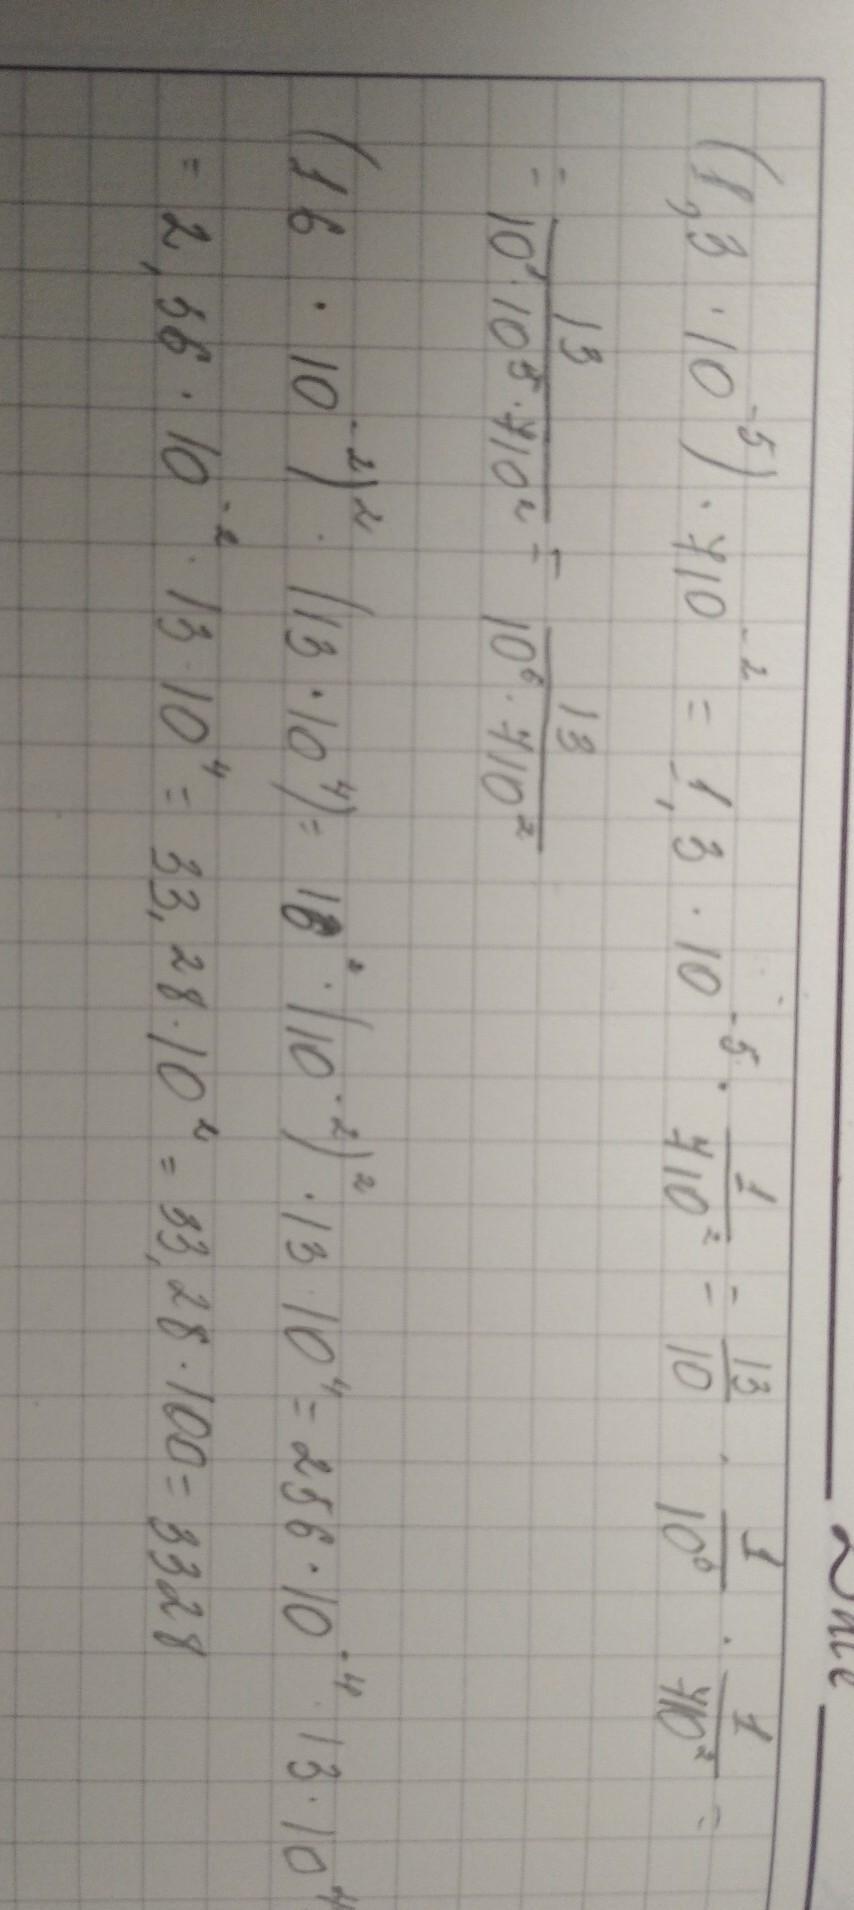 Date
(1,3 · 10⁻⁵) · 410⁻² = 1,3 · 10⁻⁵ · 1/410² = 13/10 · 1/10⁵ · 1/410² =
= 13/(10¹ · 10⁵ · 410²) = 13/(10⁶ · 410²)
(16 · 10⁻²)² · (13 · 10⁴) = 16² · (10⁻²)² · 13 · 10⁴ = 256 · 10⁻⁴ · 13 · 10⁴
= 2,56 · 10⁻² · 13 · 10⁴ = 33,28 · 10² = 33,28 · 100 = 3328